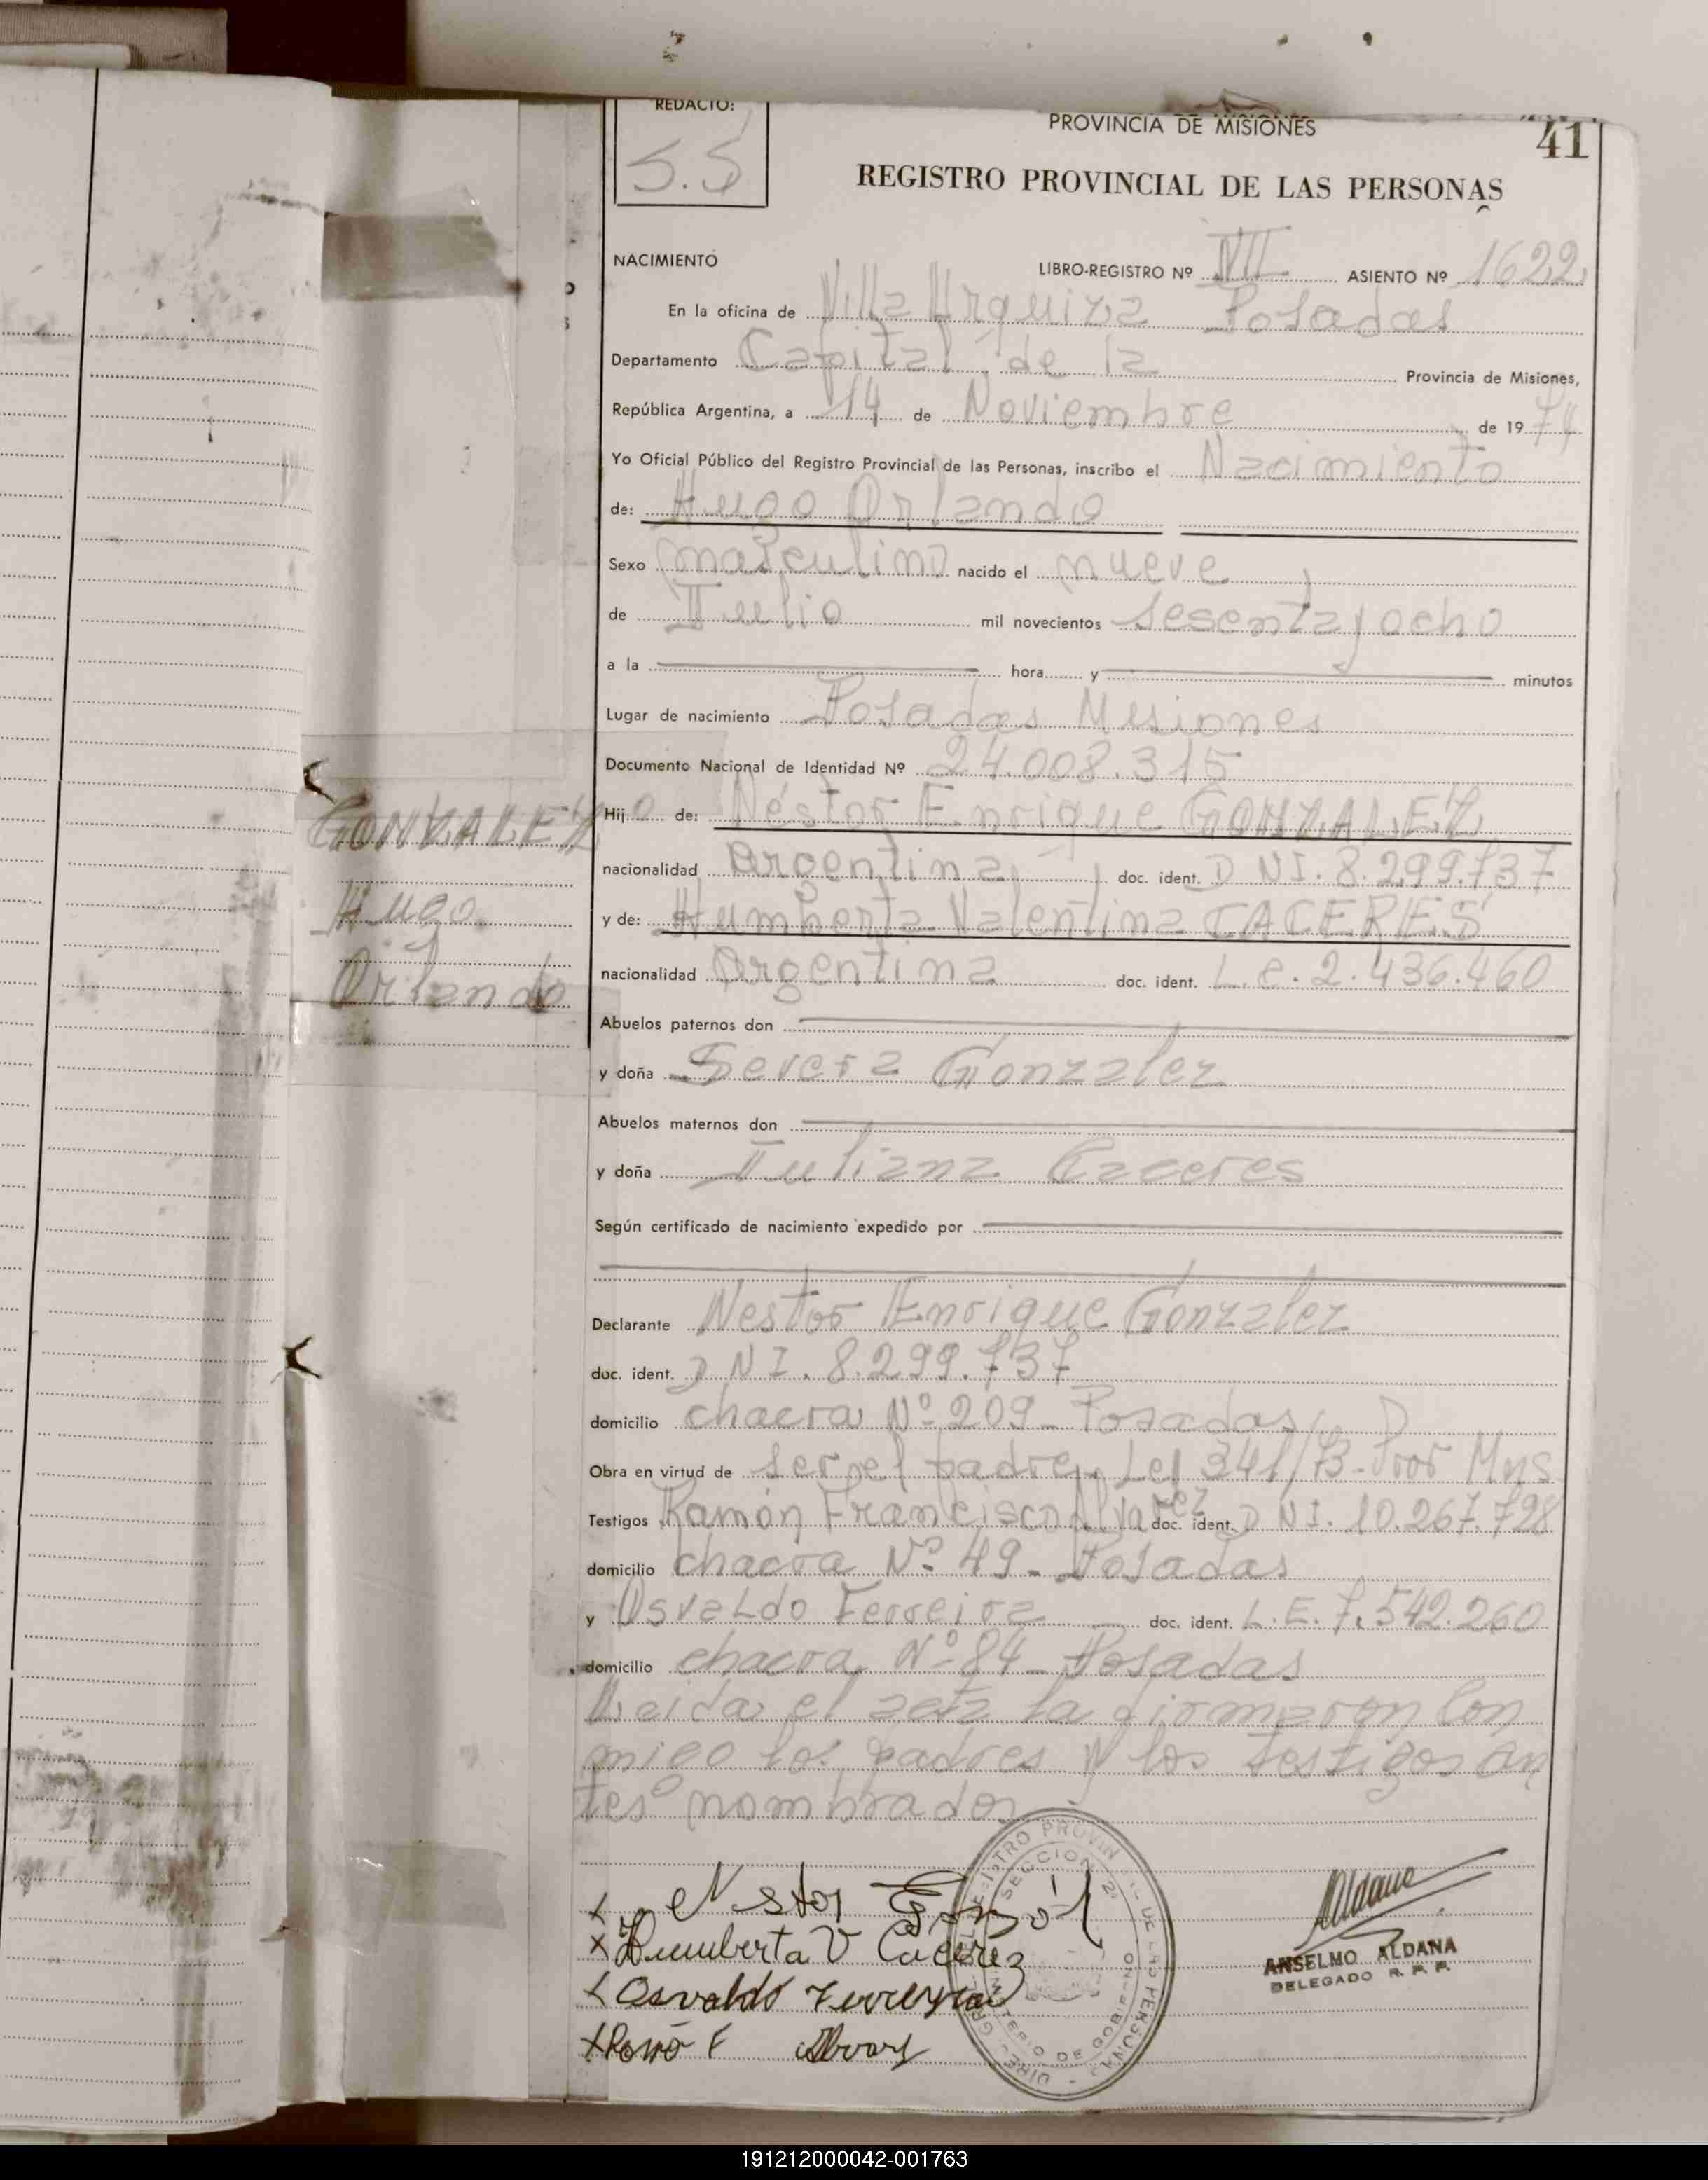 REDACTO:
S.S
PROVINCIA DE MISIONES
41
REGISTRO PROVINCIAL DE LAS PERSONAS
NACIMIENTO
LIBRO-REGISTRO Nº VII ASIENTO Nº 1622
En la oficina de Villa Urquiza Posadas
Departamento Capital de la Provincia de Misiones,
República Argentina, a 14 de Noviembre de 1974
Yo Oficial Público del Registro Provincial de las Personas, inscribo el Nacimiento
de: Hugo Orlando
Sexo masculino nacido el nueve
de Julio mil novecientos sesenta y ocho
a la hora y minutos
Lugar de nacimiento Posadas Misiones
Documento Nacional de Identidad Nº 24.008.315
Hijo de: Néstor Enrique GONZALEZ
nacionalidad Argentina doc. ident. D NI. 8.299.737
y de: Humberta Valentina CACERES
nacionalidad Argentina doc. ident. L.c. 2.436.460
Abuelos paternos don
y doña Severa Gonzalez
Abuelos maternos don
y doña Juliana Caceres
Según certificado de nacimiento expedido por
Declarante Nestor Enrique Gonzalez
doc. ident. D N I. 8.299.737
domicilio chacra Nº 209 - Posadas
Obra en virtud de ser el padre Ley 341/73 - Mns
Testigos Ramón Francisco Alvarez doc. ident. D NI. 10.267.728
domicilio chacra Nº 49 - Posadas
y Osvaldo Ferreira doc. ident. L.E. 7.542.260
domicilio chacra Nº 84 - Posadas
Leida el acta la firmaron Con
migo los padres y los testigos an
tes nombrados
GONZALEZ
Hugo
Orlando
Nestor
Humberta V Cacerez
Osvaldo Ferreyra
F Alvarez
SECCION 2
Aldana
ANSELMO ALDANA
DELEGADO R. P. P.
191212000042-001763